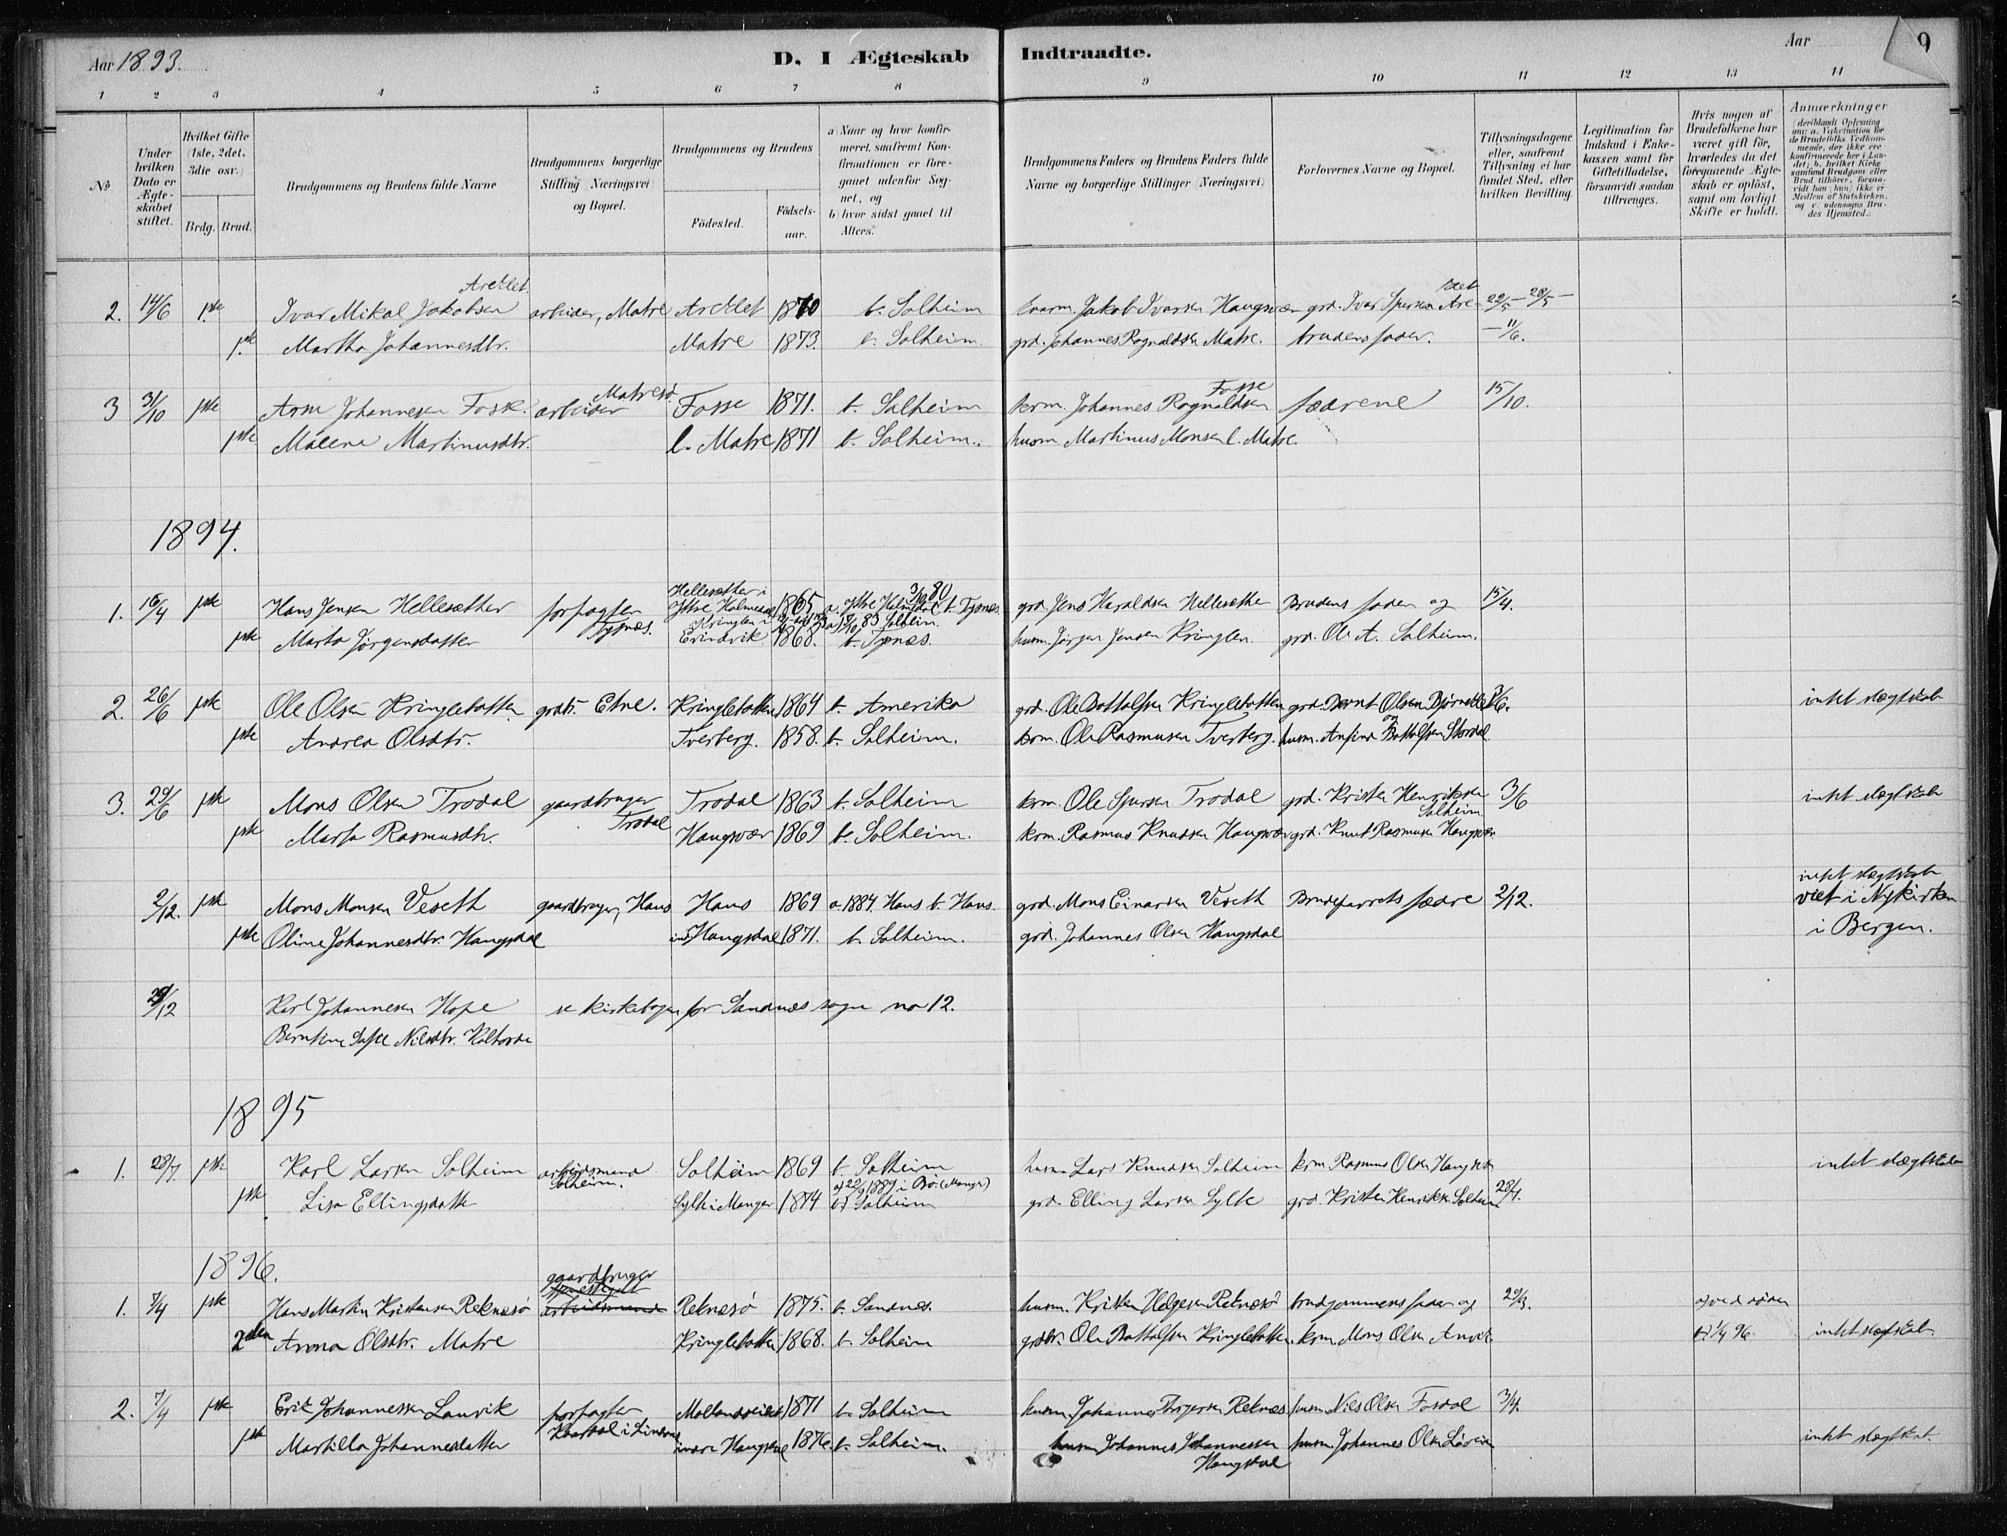 Aar 1893.
D. I Ægteskab Indtraadte.
Aar
9
1 2 3 4 5 6 7 8 9 10 11 12 13 14
No
Under hvilken Dato er Ægteskabet stiftet.
Hvilket Gifte (1ste, 2det, 3die osv.)
Brdg. Brud.
Brudgommens og Brudens fulde Navne
Brudgommens borgerlige Stilling (Næringsvei) og Bopæl.
Brudgommens og Brudens
Födested.
Födselsaar.
a) Naar og hvor konfirmeret, saafremt Konfirmationen er foregaaet udenfor Sognet, og
b) hvor sidst gaaet til Alters.
Brudgommens Faders og Brudens Faders fulde Navne og borgerlige Stillinger (Næringsvei)
Forlovernes Navne og Bopæl.
Tillysningsdagene eller, saafremt Tillysning ei har fundet Sted, efter hvilken Bevilling.
Legitimation for Indskud i Enkekassen samt for Giftetilladelse, forsaavidt saadan tiltrænges.
Hvis nogen af Brudefolkene har været gift för, hvorledes da det foregaaende Ægteskab er oplöst, samt om lovligt Skifte er holdt.
Anmærkninger (deriblandt Oplysning om: a. Vakcination for de Brudefolks Vedkommende, der ikke ere konfirmerede her i Landet; b. hvilket Kirkesamfund Brudgom eller Brud tilhörer, forsaavidt han (hun) ikke er Medlem af Statskirken, og c. udensogns Brudes Hjemsted.
2. 14/6 1ste Ivar Mikal Jakobsen arbeider, Matre 1870 b. Solheim Jakob Ivarsen Haugsvær grd. Ivar Sjursen 22/5 - 28/5 -
1ste Martha Johannesdtr. Matre 1873. b. Solheim grd. Johannes Ragnaldsen Matre. brudens fader. - 11/6.
3 31/10 1ste Johannesen Fosse arbeider Matresø. Fosse 1871. b. Solheim krm. Johannes Ragnaldsen Fosse fædrene 15/10.
1ste Malene Martinusdtr. l. Matre 1871 b. Solheim. husm. Martinus Monsen l. Matre
1894.
1. 16/4 1ste Hans Jensen Hellesæther forpagter Tysnes. Hellesæther i Ytre Holmedal 1865 a. Ytre Holmedal 3/10 80 b. Tysnes. grd. Jens Haraldsen Hellesæther Brudens fader og 15/4.
1ste Marta Jørgensdatter Kringlen i Evindvik 1868. Solheim. b. Tysnes. husm. Jørgen Jensen Kringlen grd. Ole A. Solheim.
2. 26/6 1ste Ole Olsen Kringlebotten grdbr. Etne. Kringlebotten 1864 b. Amerika grd. Ole Bottolfsen Kringlebotten grd. Bernt Olsen intet slegtskab
1ste Andrea Olsdtr. Tverberg. 1858. b. Solheim. krm. Ole Rasmusen Tverberg. husm. Anfind Bottolfsen Stordal
3. 29/6 1ste Mons Olsen Trodal gaardbruger Trodal Trodal 1863 b. Solheim krm. Ole Sjursen Trodal grd. Kristen Henriksen Solheim 3/6 intet slegtskab
1ste Marta Rasmusdtr. Haugsvær 1869 b. Solheim. krm. Rasmus Knudsen Haugsvær grd. Knut Rasmusen Haugsvær
2/12. 1ste Mons Monsen Veseth gaardbruger, Haus Haus 1869 a. 1884 Haus b. Haus. grd. Mons Einarsen Veseth Brudeparrets fædre 2/12. intet slegtskab viet i Nykirken
1ste Oline Johannesdtr. Haugsdal Haugsdal 1871. b. Solheim. grd. Johannes Olsen Haugsdal i Bergen.
29/12 Karl Johannesen Hope se kirkebogen for Sandnæs sogn no 12.
Bentine Nilsdtr.
1895
1. 28/7 1ste Karl Larsen Solheim arbeidsmand Solheim. Solheim 1869 b. Solheim husm. Lars Knudsen Solheim krm. Rasmus Olsen Haugsvær intet slegtskab
1ste Lisa Ellingsdatter Sylte i Manger 1874 a) 22/9 1889 i Bø (Manger) b) Solheim grd. Elling Larsen Sylte grd. Kristen Henriksen Solheim 28/7.
1896.
1. 7/4 1ste Hans Martin Kristensen Reknesø gaardbruger arbeidsmand Reknesø 1875. b. Sandnes. husm. Kristen Helgesen Reknesø brudgommens fader og 29/3. a) ved døden
2den Anna Olsdtr. Matre Kringlebotten 1868. b. Solheim grdbr. Ole Bottolfsen Kringlebotten. krm. Mons Olsen b) 1/4 96. intet slegtskab
2. 7/4 1ste Erik Johannessen Lauvik forpagter 1871 b. Solheim husm. Johannes Reknes husm. Nils Olsen Fosdal 3/4.
1ste Martilla Johannesdatter indre Haugsdal 1876. b. Solheim. husm. Johannes Johannessen Haugsdal husm. Johannes Olsen intet slegtskab.